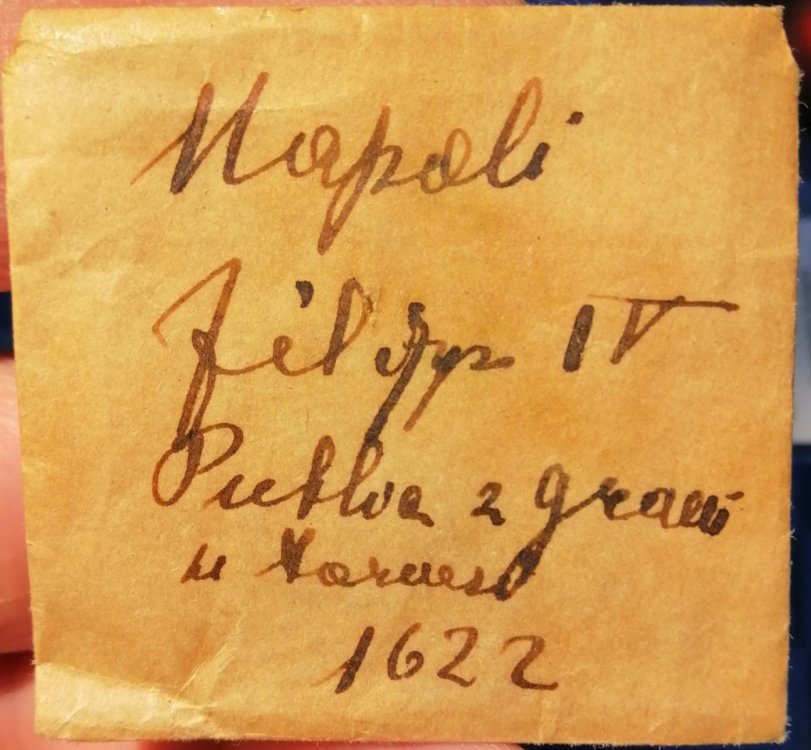 Napoli
Filip IV
Publica 2 grani
u tornesi
1622